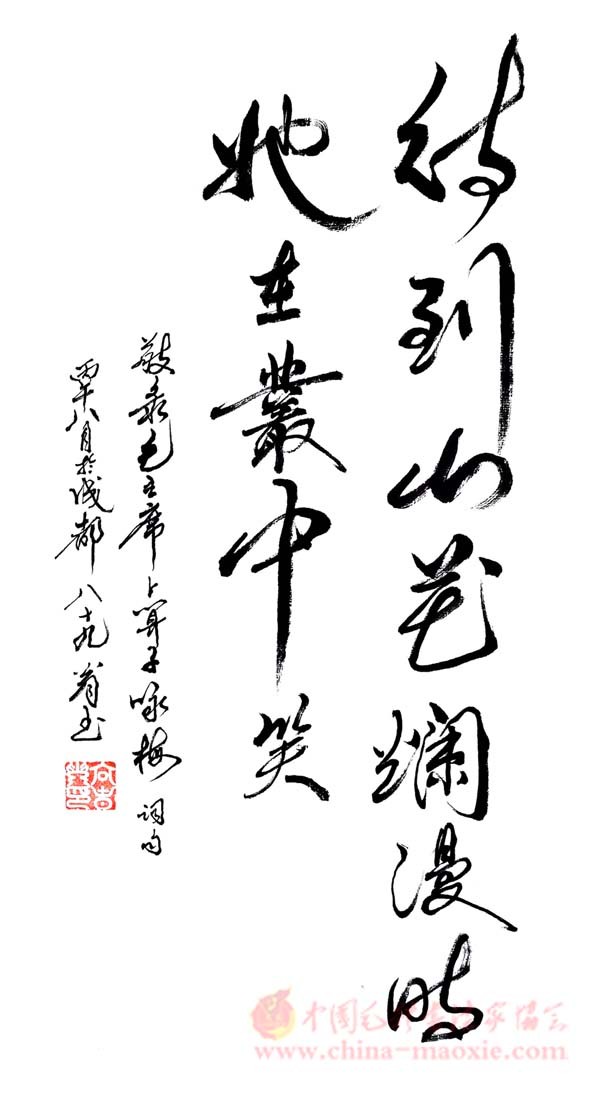 待到山花爛漫時
她在叢中笑
敬录毛主席卜算子咏梅词句
丙申八月於成都 八十九翁玉
中国毛体书法家协会
www.china-maoxie.com